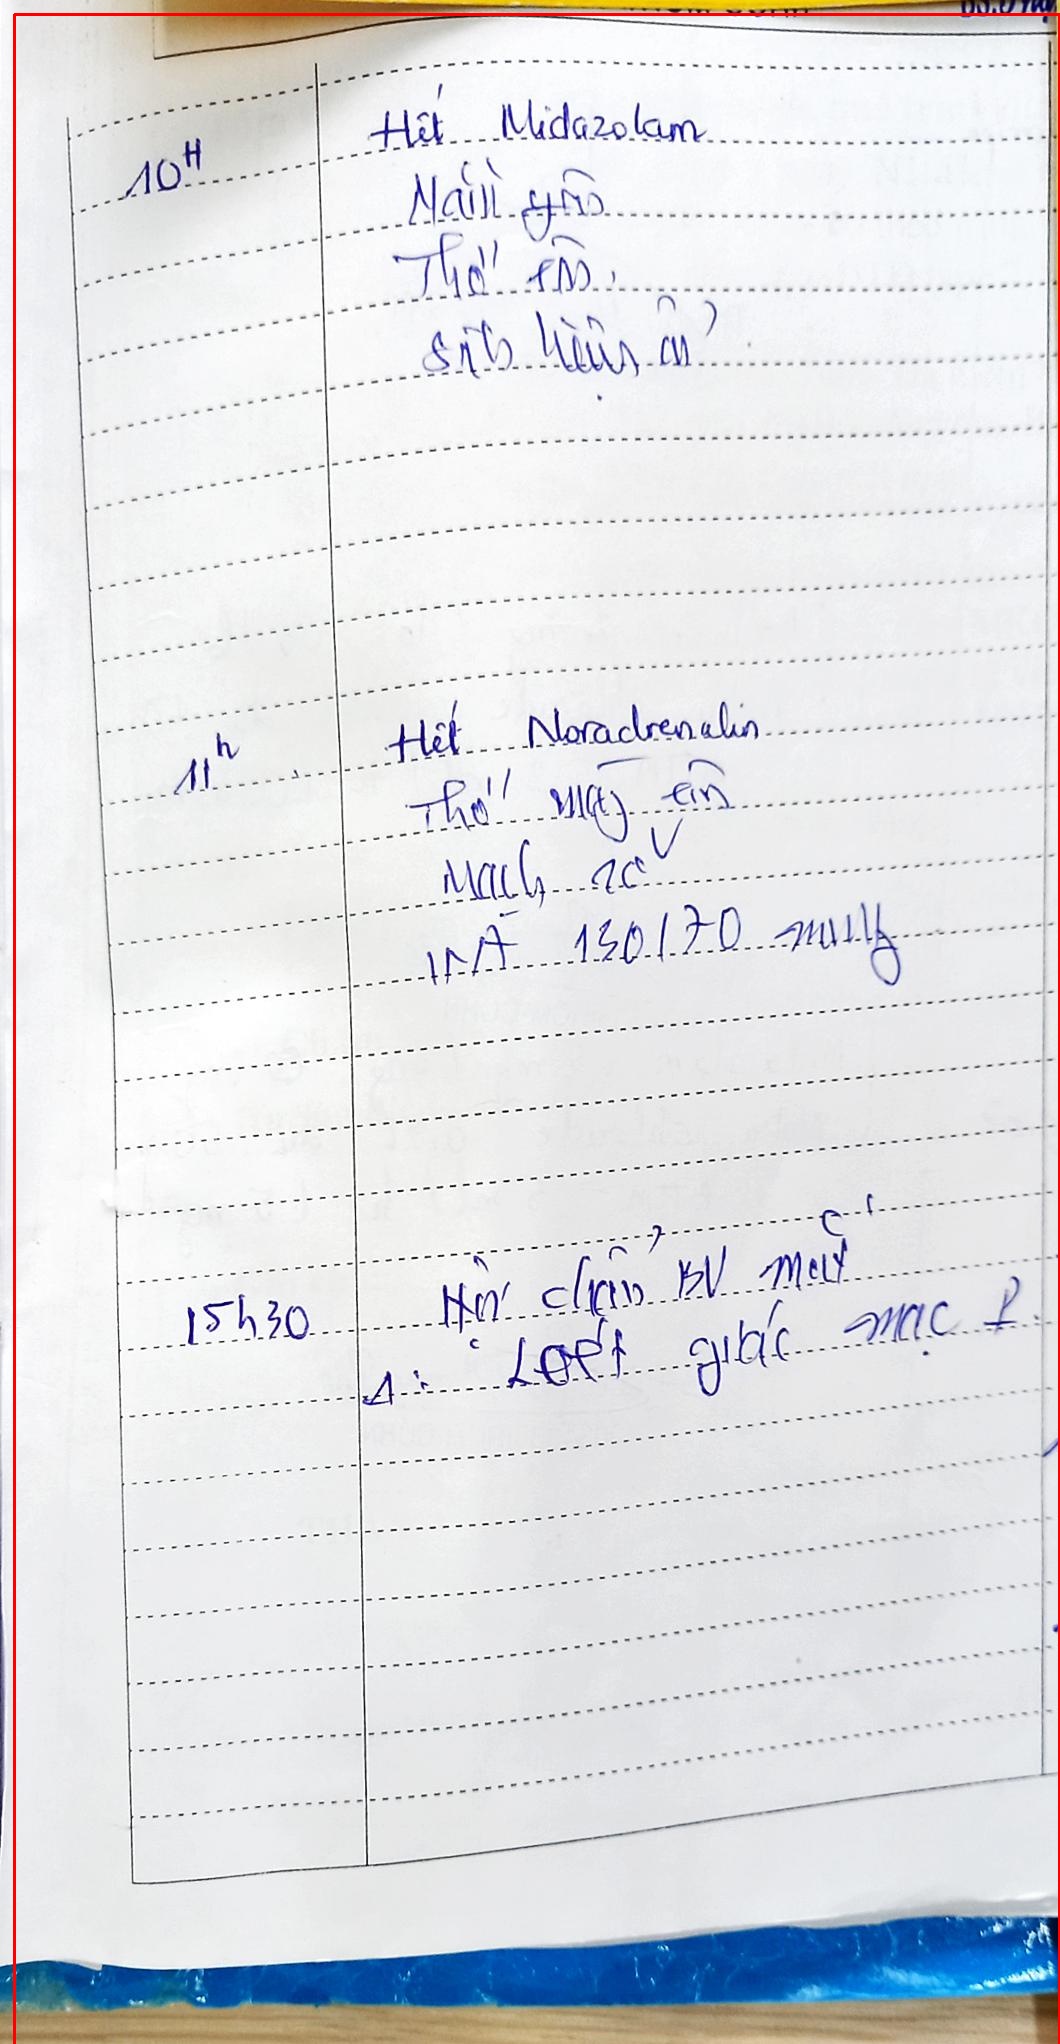 10H Hết Midazolam
Nằm yên
Thở êm
Sinh hiệu ổn
11h Hết Noradrenalin
Thở máy êm
Mạch
HA 130/70 mmHg
15h30 Hội chẩn BV mắt
Δ: Loét giác mạc P